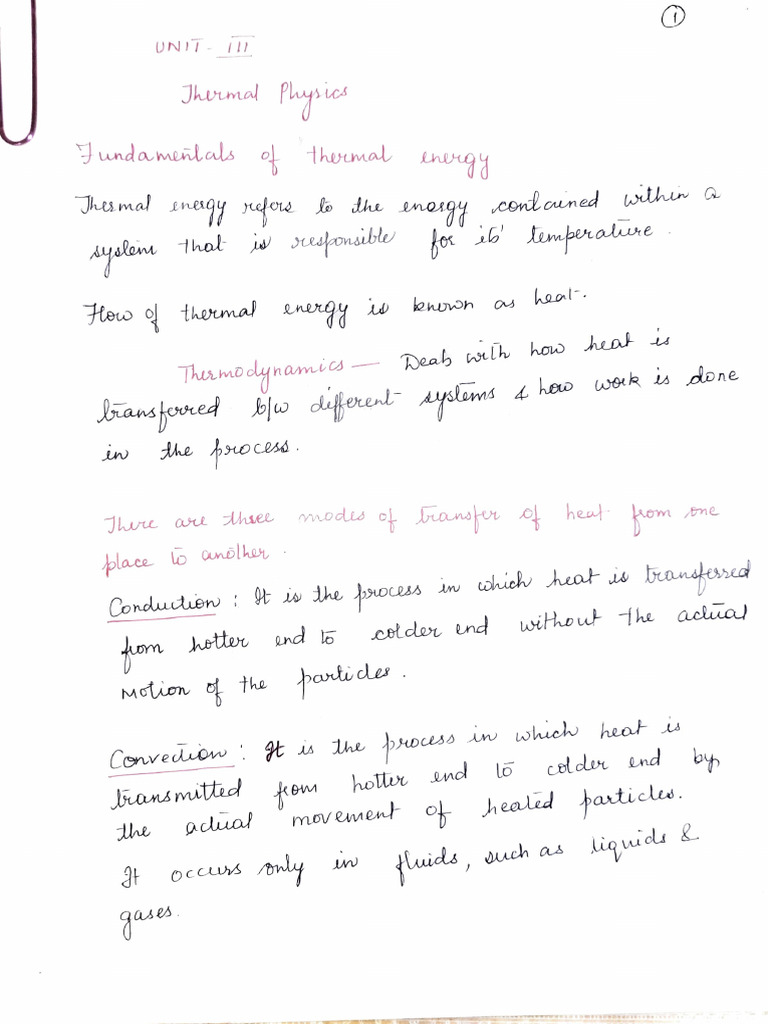 1
UNIT - III
Thermal Physics
Fundamentals of thermal energy
Thermal energy refers to the energy contained within a
system that is responsible for its' temperature.
Flow of thermal energy is known as heat.
Thermodynamics — Deals with how heat is
transferred b/w different systems & how work is done
in the process.
There are three modes of transfer of heat from one
place to another.
Conduction : It is the process in which heat is transferred
from hotter end to colder end without the actual
motion of the particles.
Convection : It is the process in which heat is
transmitted from hotter end to colder end by
the actual movement of heated particles.
It occurs only in fluids, such as liquids &
gases.